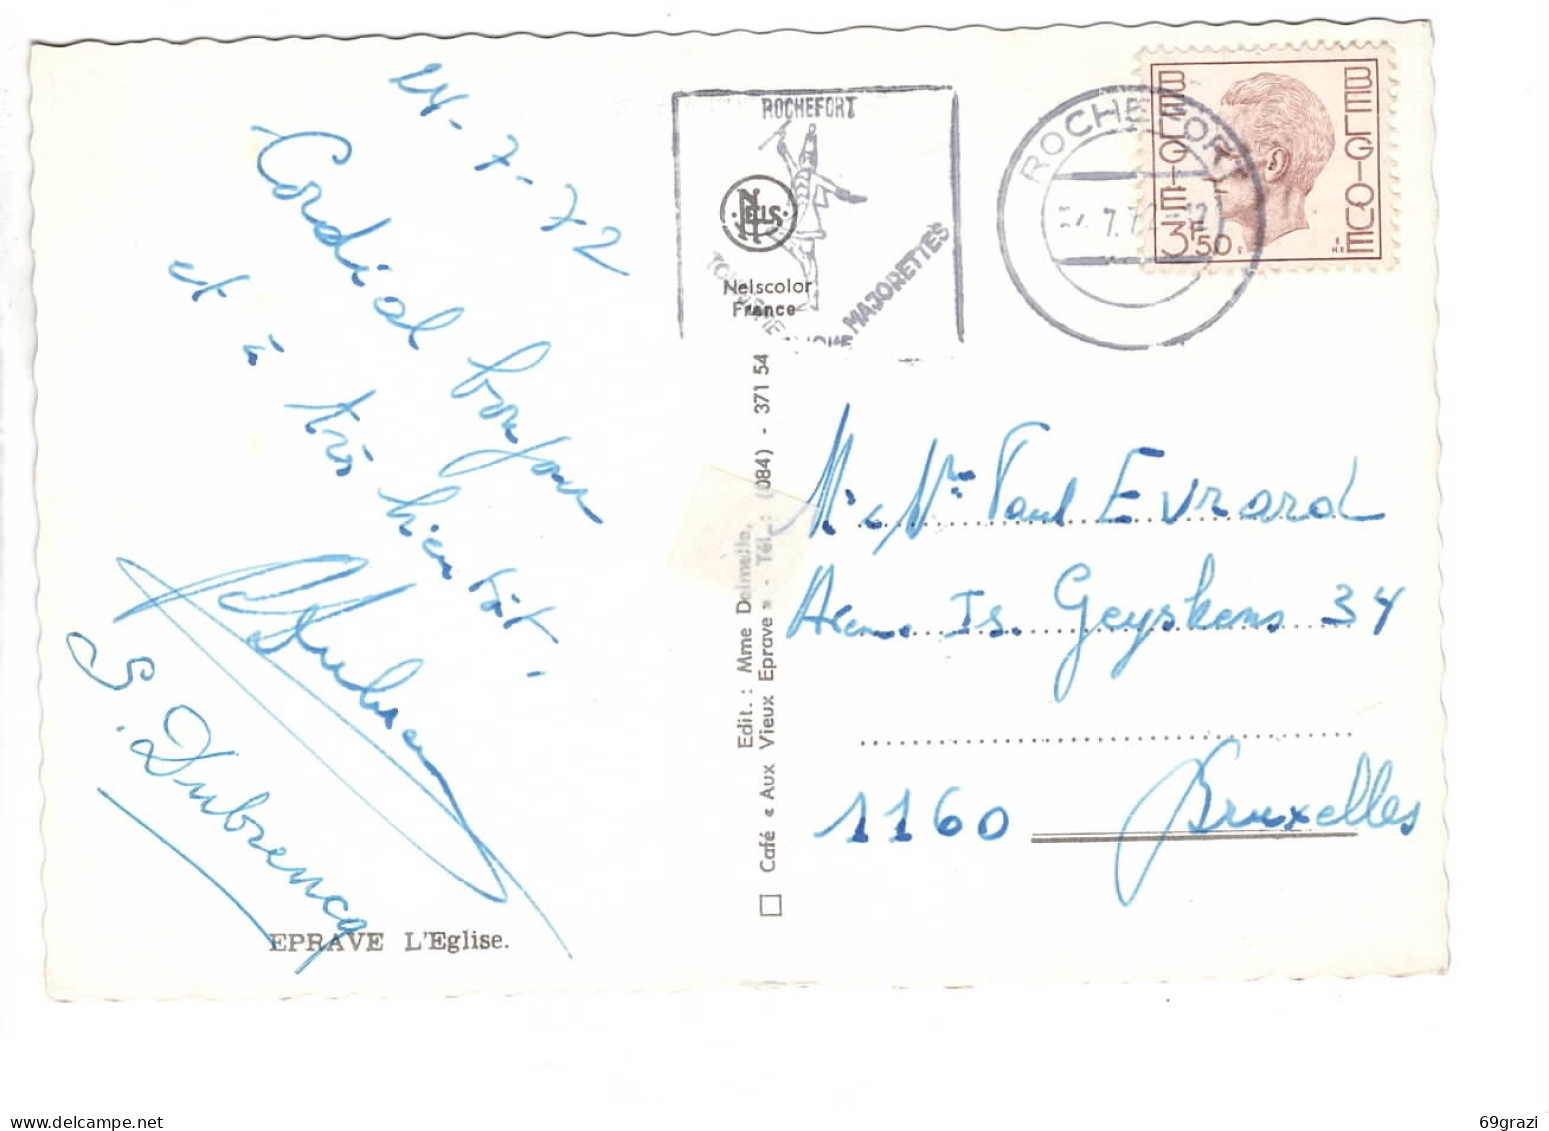 24-7-72
Cordial bonjour
et à très bientôt.
S. Dubrencq
EPRAVE L'Eglise.
ROCHEFORT
NELS
Nelscolor
France
MAJORETTES
ROCHEFORT
7.72-12
BELGIE
BELGIQUE
3F50
Edit. : Mme Delmelle,
Café « Aux Vieux Eprave » - Tél. : (084) - 371 54
Mr & Mme Paul Evrard
Avenue Is. Geyskens 34
1160 Bruxelles
delcampe.net
69grazi